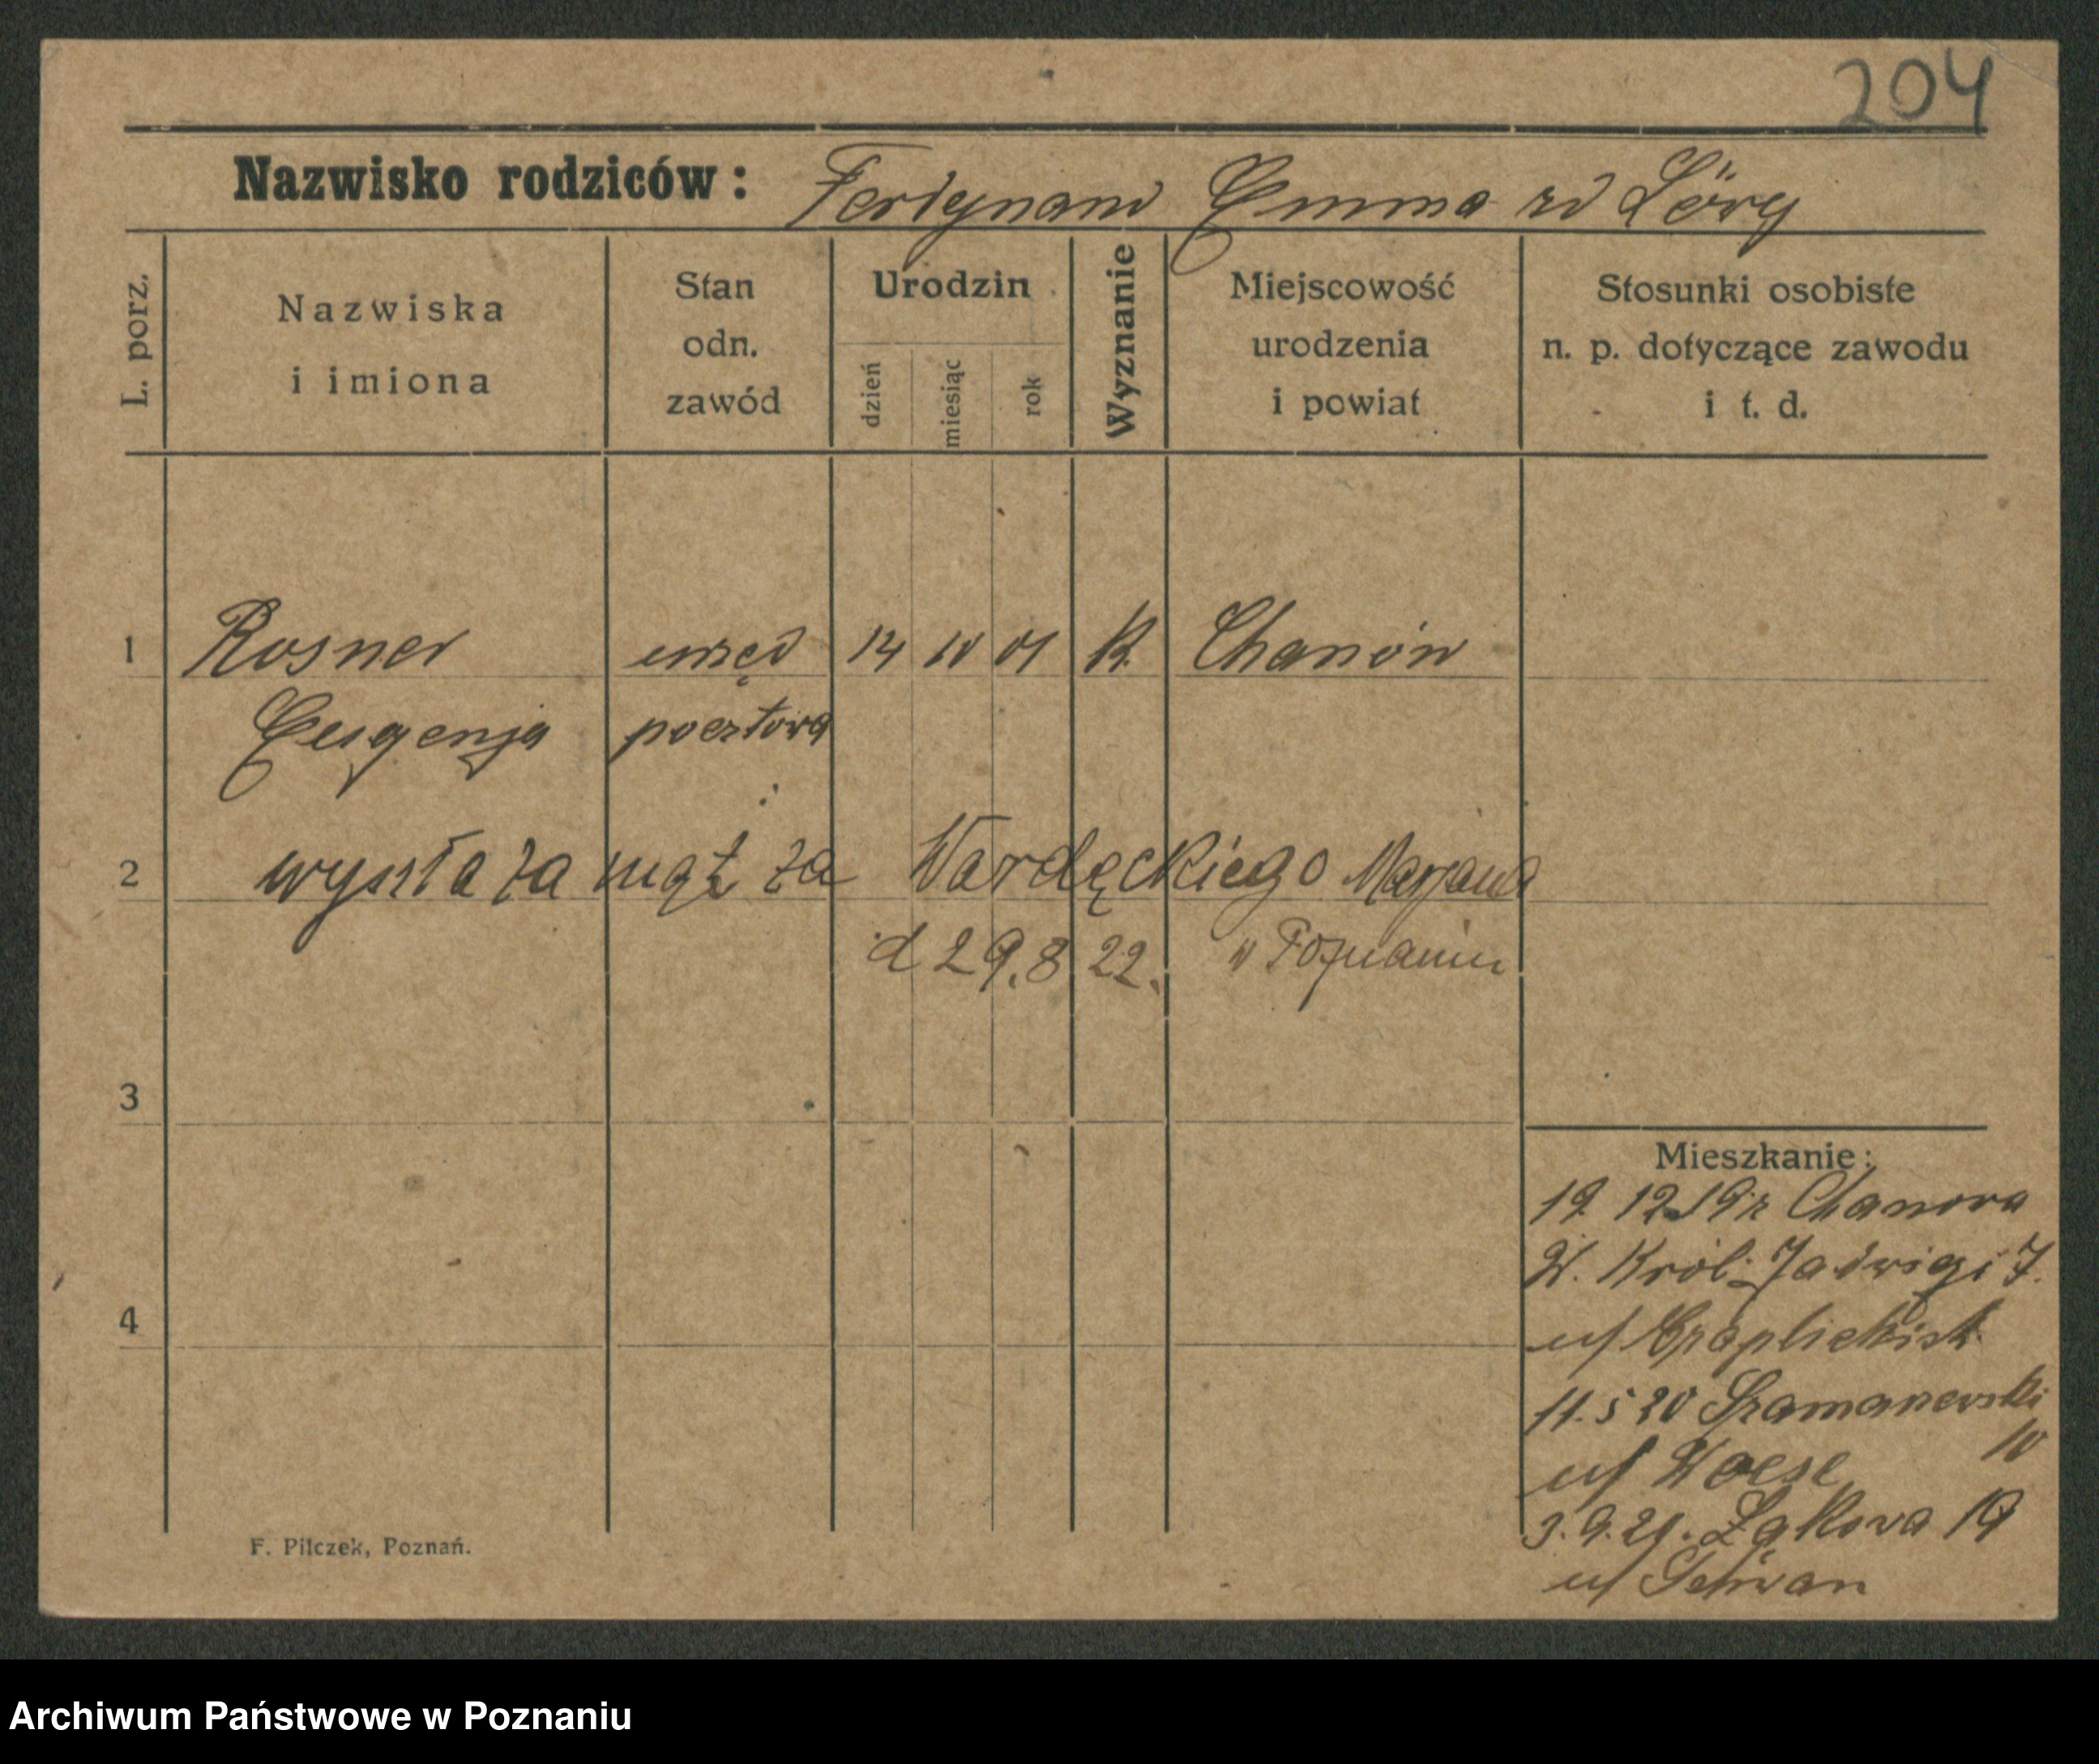 204
Nazwisko rodziców: Ferdynand Emma zd Löry
L. porz.
Nazwiska
i imiona
Stan
odn.
zawód
Urodzin
dzień
miesiąc
rok
Wyznanie
Miejscowość
urodzenia
i powiat
Stosunki osobiste
n. p. dotyczące zawodu
i t. d.
1 Rosner urzęd 14 10 01 K. Chanów
Eugenja pocztowa
2 wyszła za mąż za Wardęckiego Marjana
d 29.8 22. w Poznaniu
3
Mieszkanie:
19. 12 19 z Chanowa
W. Król. Jadwigi 7.
4
u/
11. 5 20 Szamarzewski
10
u/ Woese
3. 9. 21. Łąkowa 19
u/
F. Pilczek, Poznań.
Archiwum Państwowe w Poznaniu